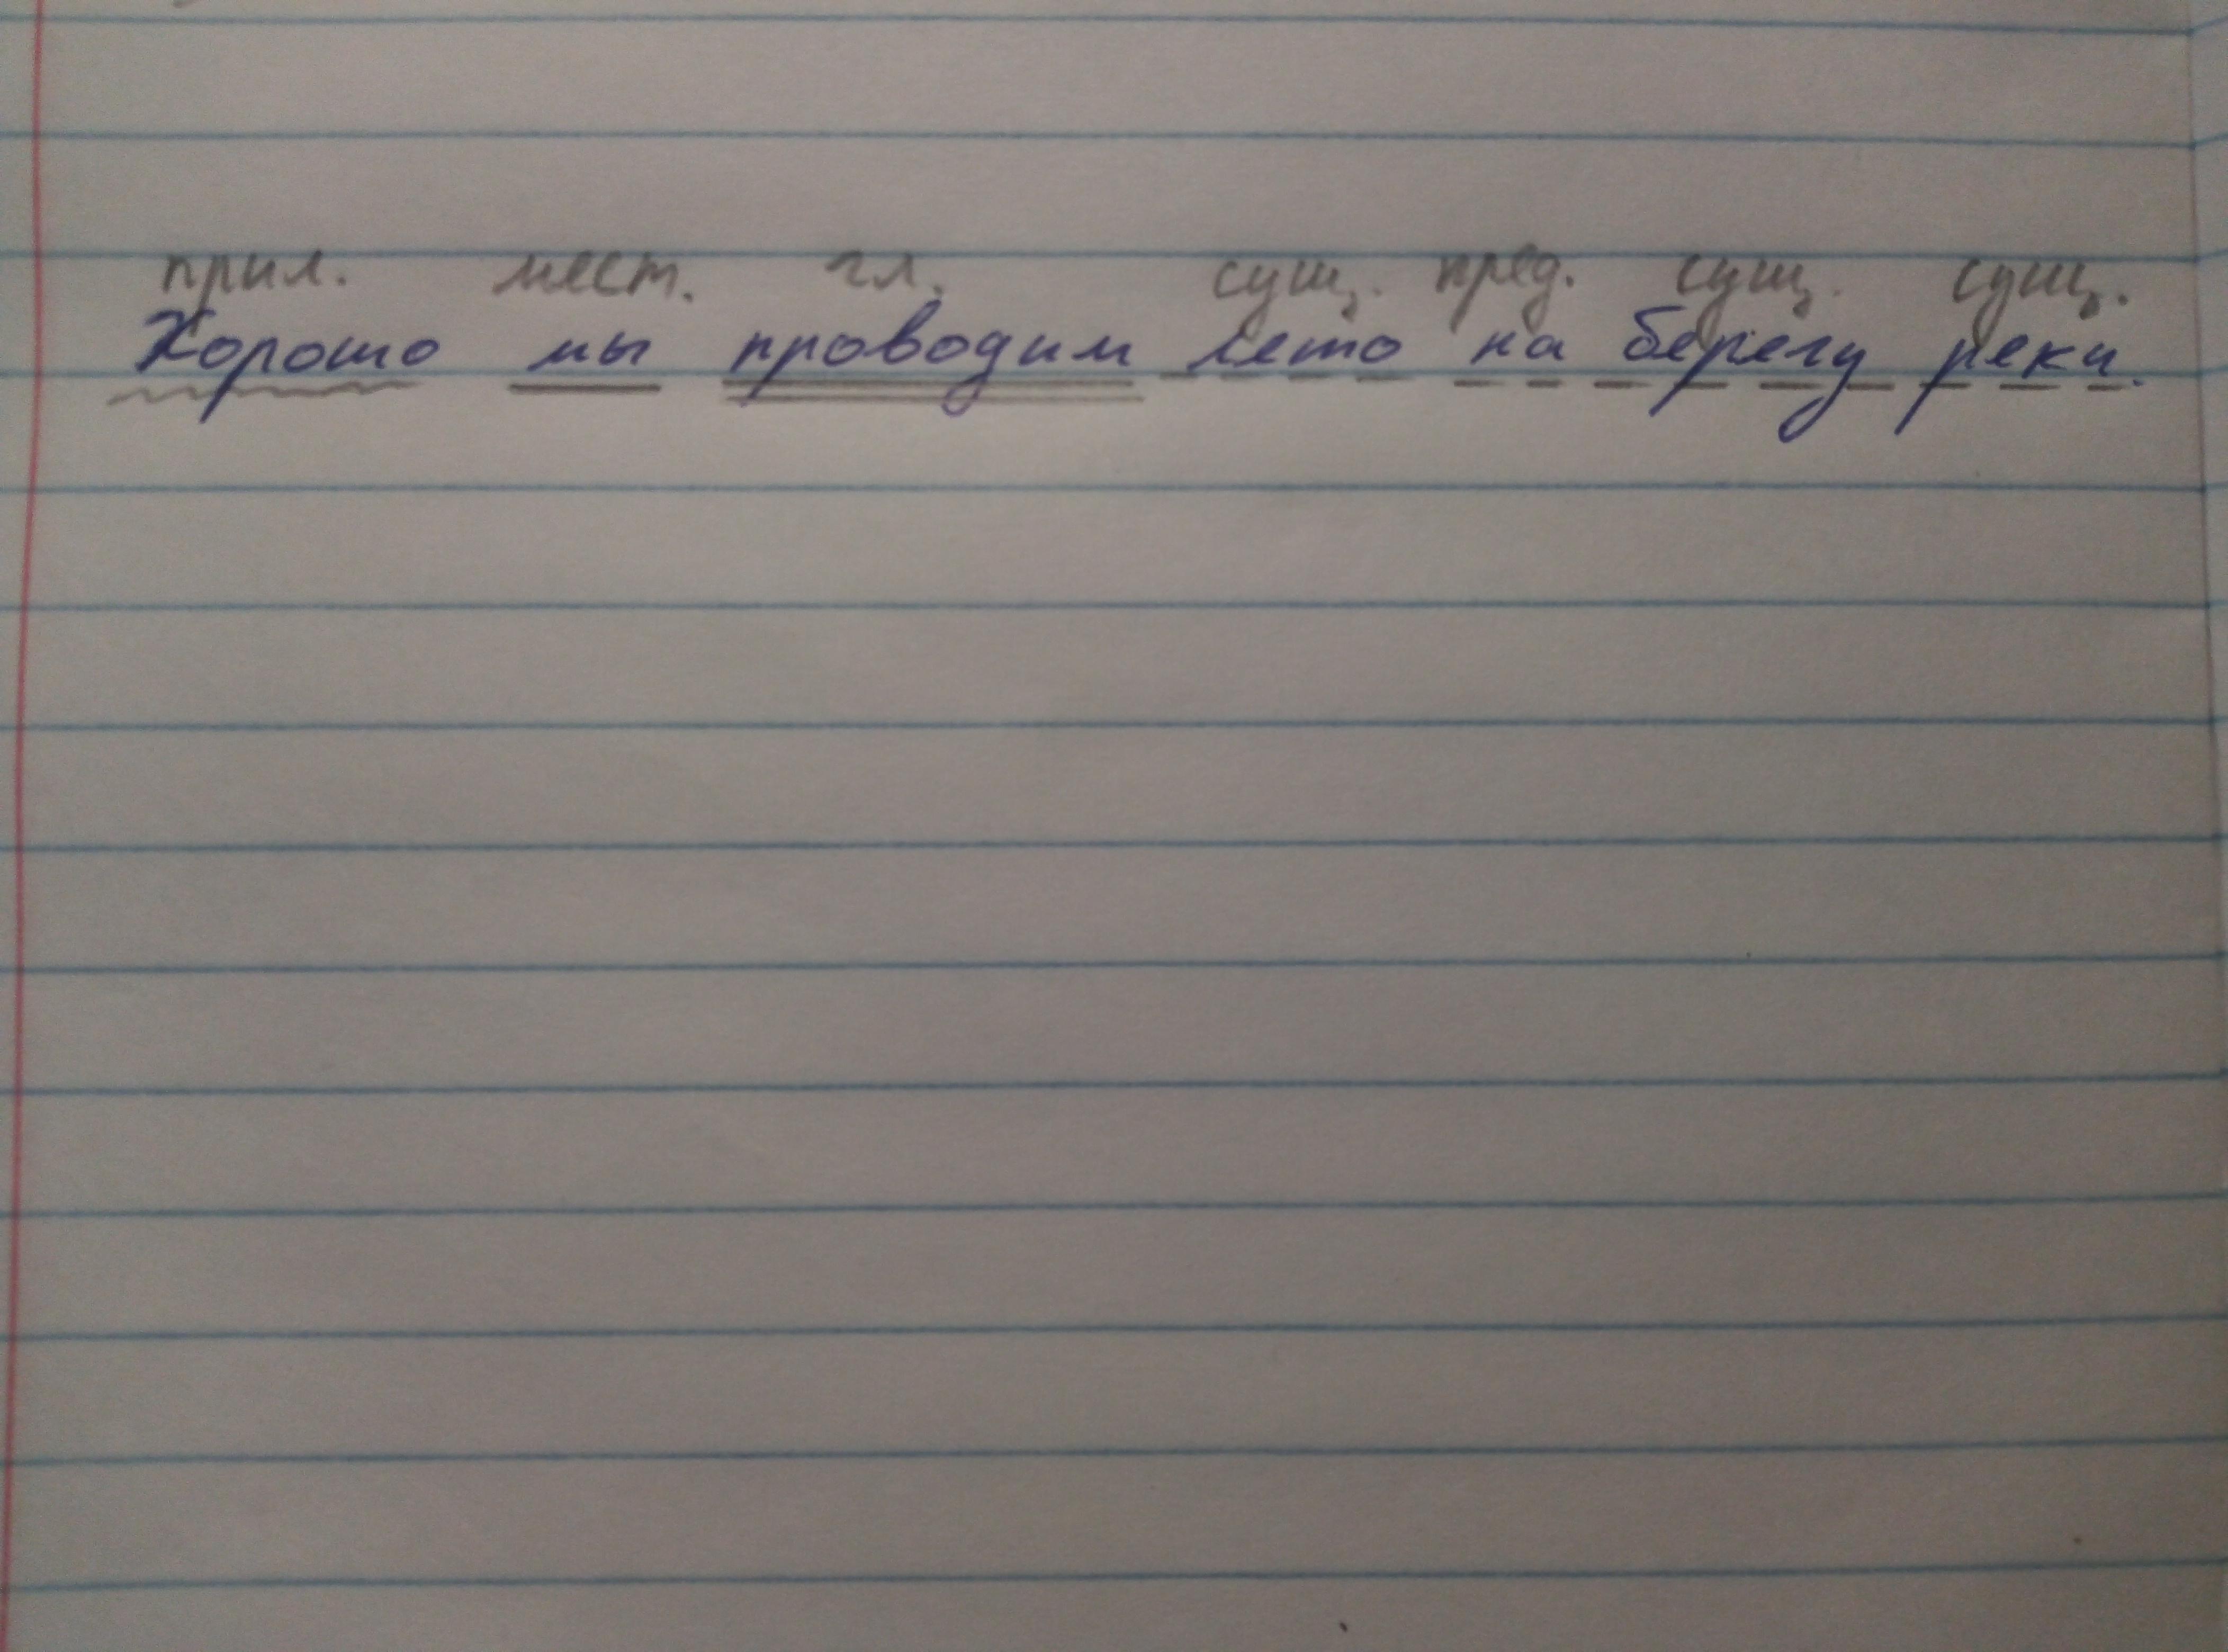 прил. мест. гл. сущ. пред. сущ. сущ.
Хорошо мы проводим лето на берегу реки.